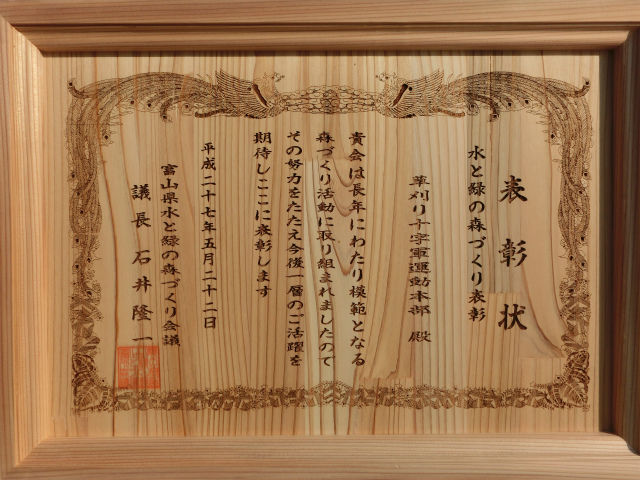 表彰状
水と緑の森づくり表彰
草刈り十字軍運動本部 殿
貴会は長年にわたり模範となる
森づくり活動に取り組まれましたので
その努力をたたえ今後一層のご活躍を
期待しここに表彰します
平成二十七年五月二十二日
富山県水と緑の森づくり会議
議長 石井隆一